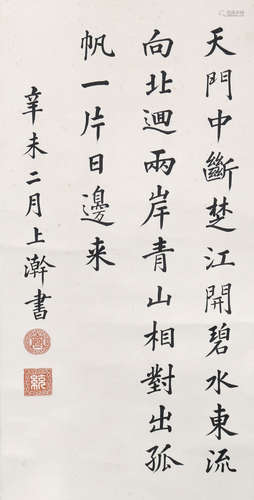 天門中斷楚江開碧水東流
向北迴兩岸青山相對出孤
帆一片日邊来
辛未二月上澣書